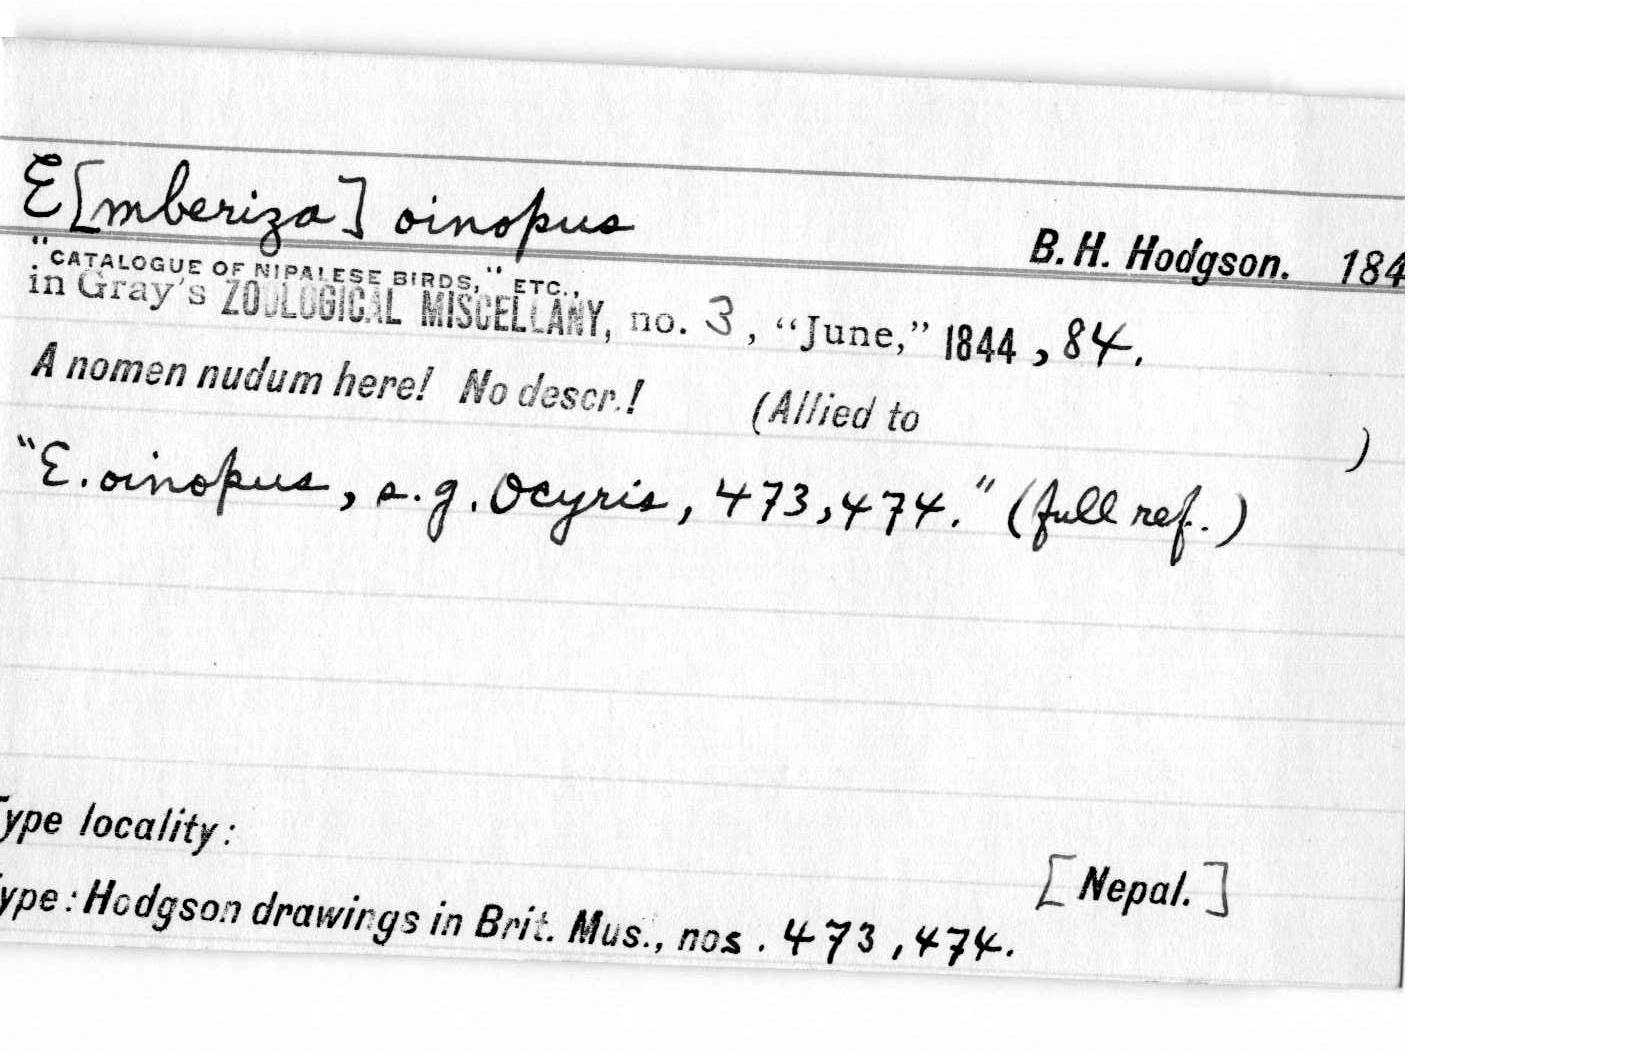 E[mberiza] oinopus
B. H. Hodgson. 184
"CATALOGUE OF NIPALESE BIRDS," ETC.,
in Gray's ZOOLOGICAL MISCELLANY, no. 3, "June," 1844, 84.
A nomen nudum here! No descr.! (Allied to )
"E. oinopus, s.g. Ocyris, 473, 474." (full ref.)
Type locality:
[Nepal.]
ype: Hodgson drawings in Brit. Mus., nos. 473, 474.